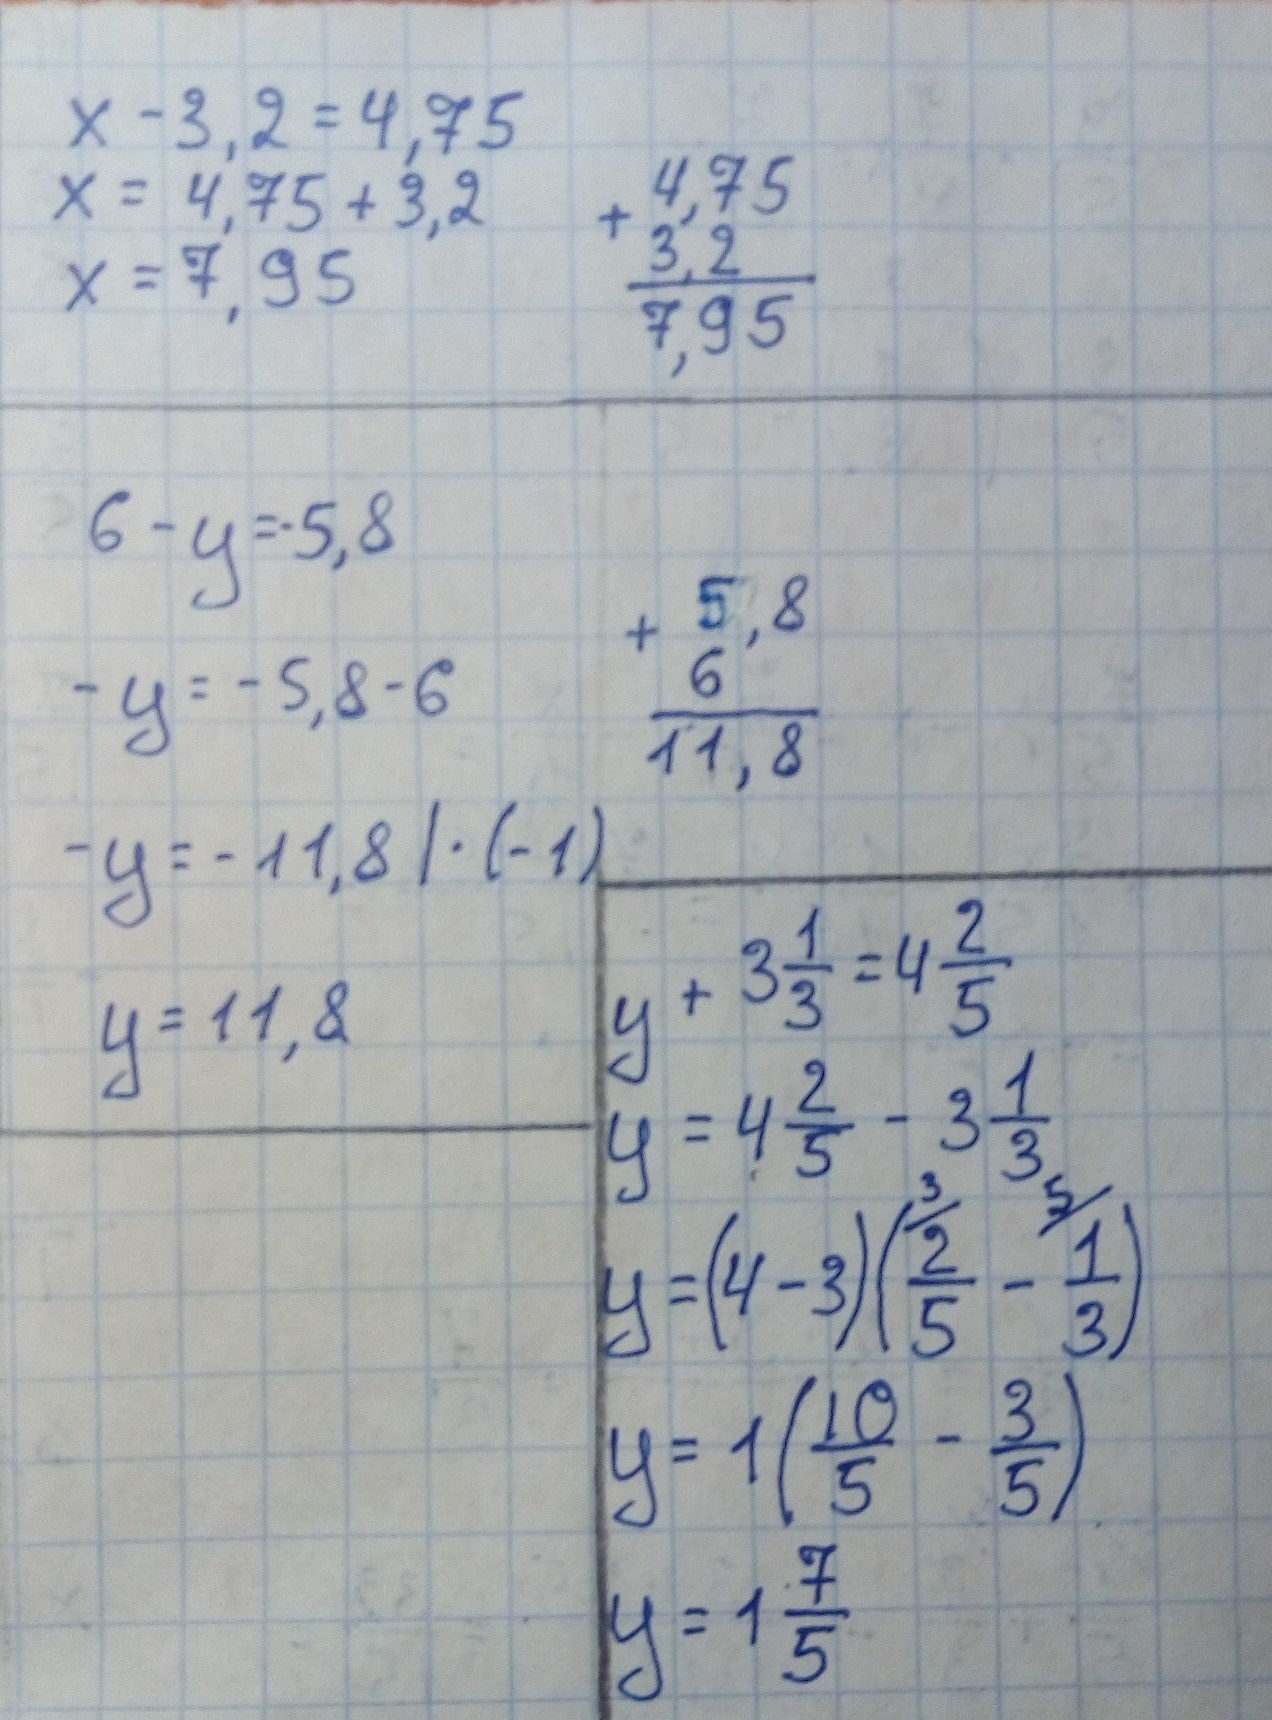 x - 3,2 = 4,75
x = 4,75 + 3,2
x = 7,95
+ 4,75
3,2
7,95
6 - y = -5,8
-y = -5,8 - 6
-y = -11,8 | · (-1)
y = 11,8
+ 5,8
6
11,8
y + 3 1/3 = 4 2/5
y = 4 2/5 - 3 1/3
y = (4 - 3) ( 3/ 2/5 - 5/ 1/3 )
y = 1 ( 10/5 - 3/5 )
y = 1 7/5